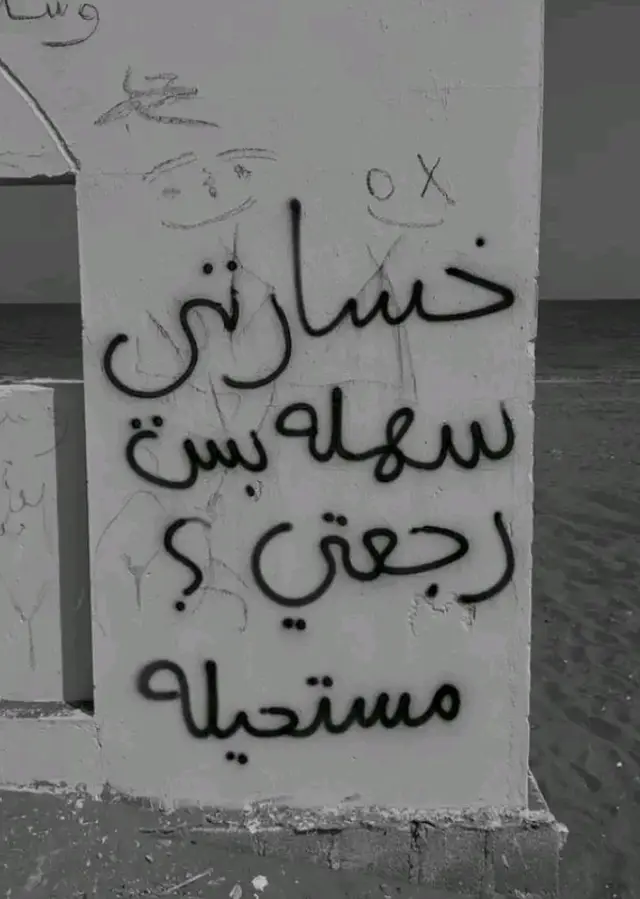 o X
خسارتي
سهله بس
رجعتي ؟
مستحيله